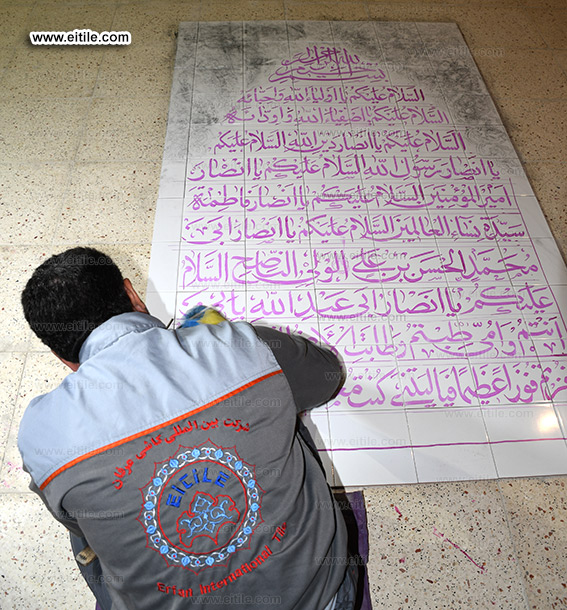 www.eitile.com
بسم الله الرحمن الرحیم
السلام علیکم یا اولیاء الله و احبائه
السلام علیکم یا اصفیاء الله و اودائه
السلام علیکم یا انصار دین الله السلام علیکم
یا انصار رسول الله السلام علیکم یا انصار
امیر المؤمنین السلام علیکم یا انصار فاطمة
سیدة نساء العالمین السلام علیکم یا انصار ابی
محمد الحسن بن علی الولی الناصح السلام
علیکم یا انصار ابی عبد الله بابی
انتم و امی طبتم و طابت
فوزا عظیما فیا لیتنی کنت
شرکت بین المللی کاشی عرفان
EITILE
Erfan International Tile